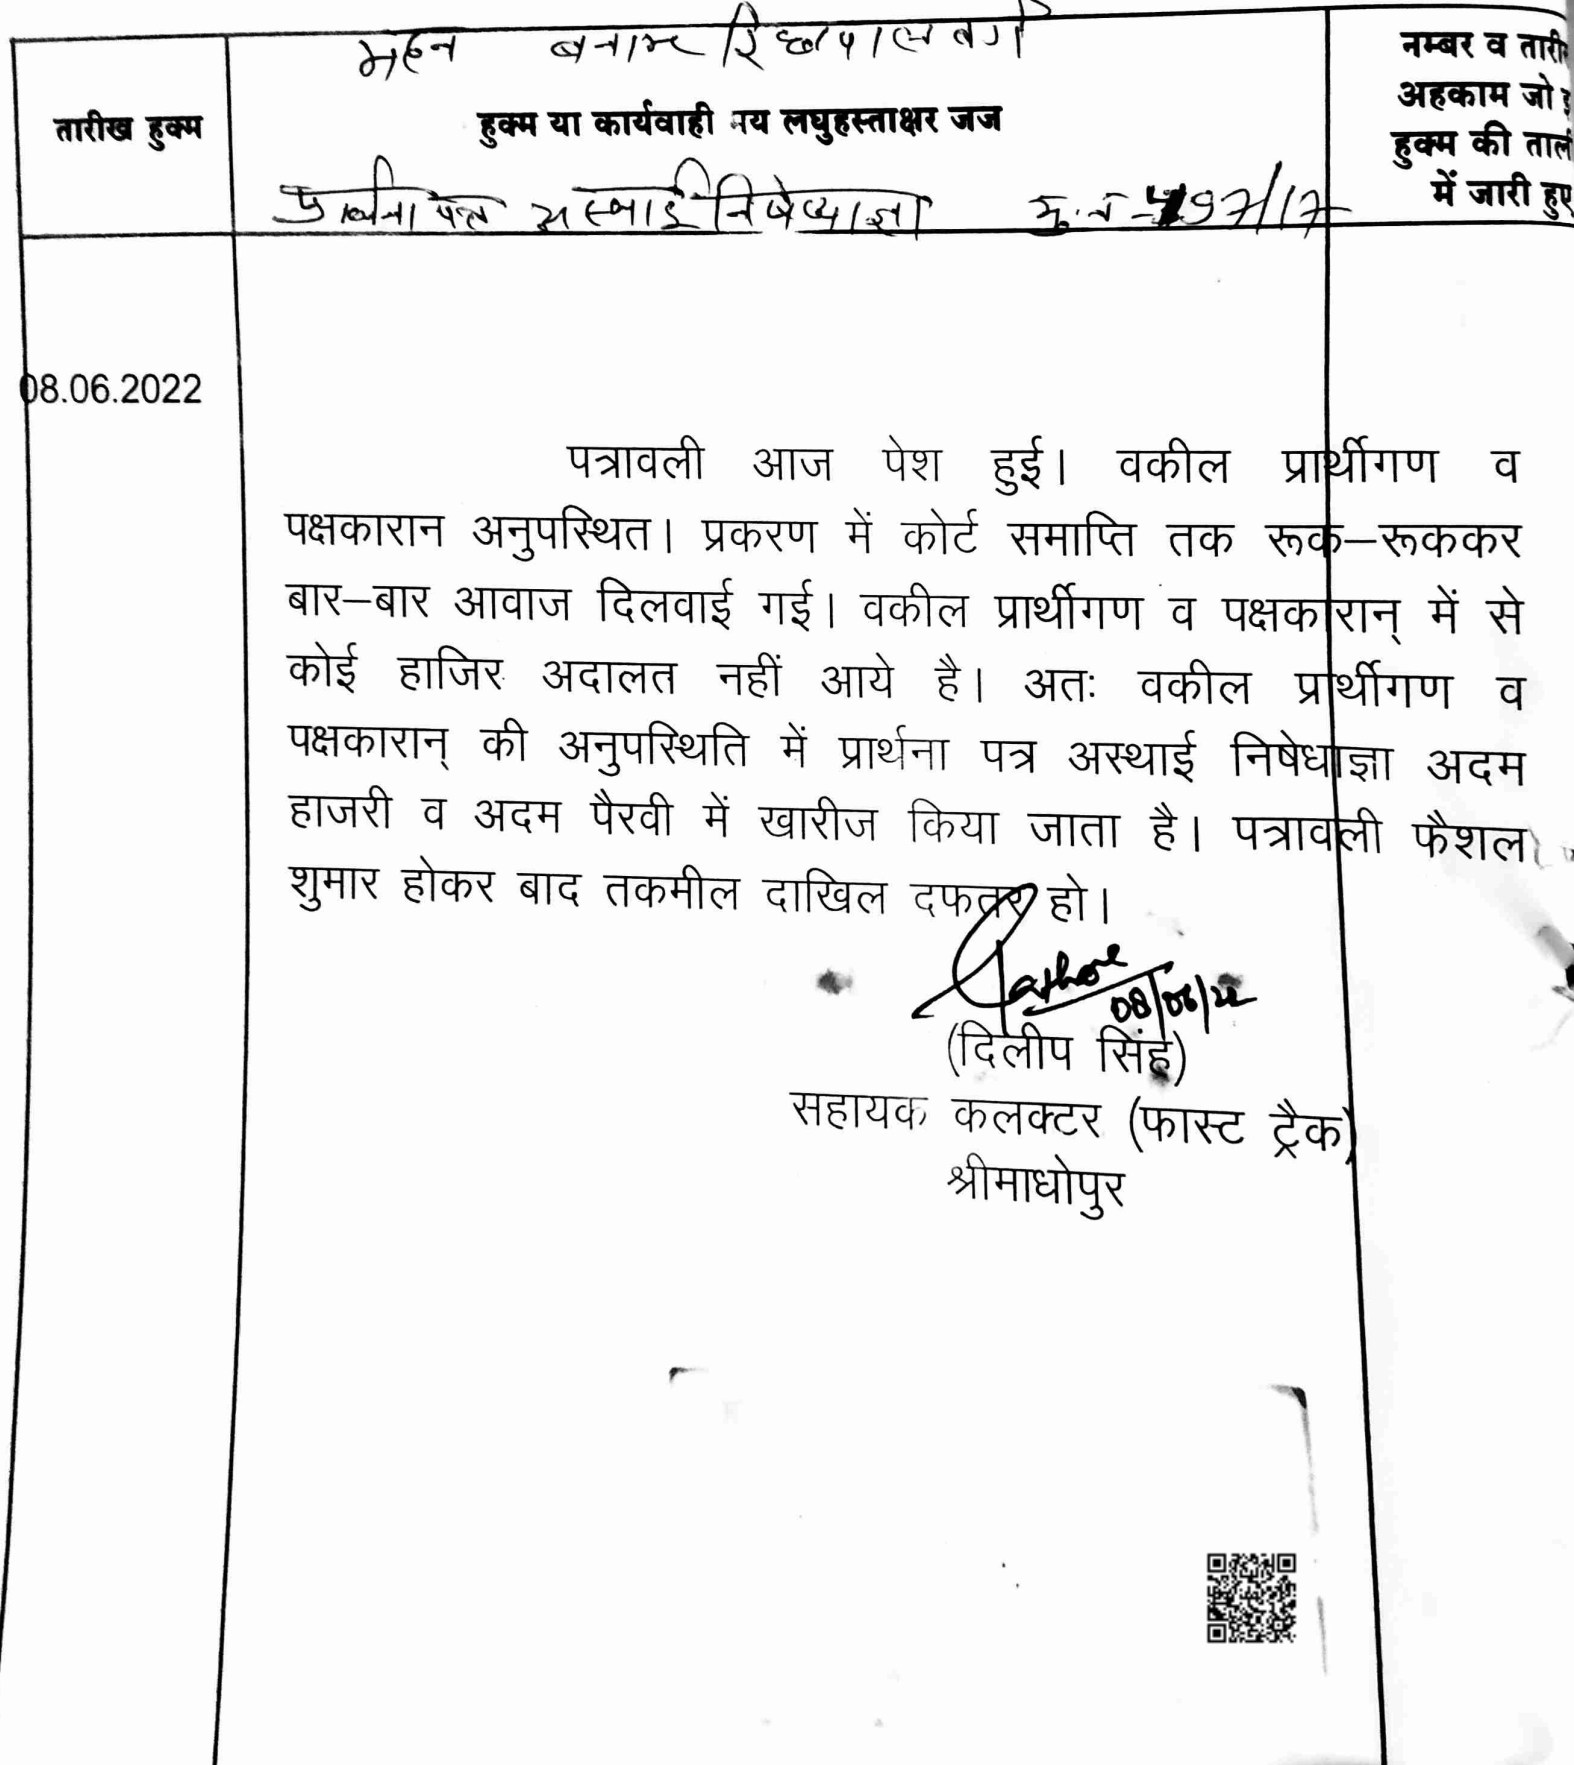 बनाम रिछपाल वगै
तारीख हुक्म
हुक्म या कार्यवाही मय लघुहस्ताक्षर जज
नम्बर व तारी
अहकाम जो इ
हुक्म की ताल
में जारी हुए
प्रार्थना पत्र अस्थाई निषेधाज्ञा मु.नं. 97/17
08.06.2022
पत्रावली आज पेश हुई। वकील प्रार्थीगण व
पक्षकारान अनुपस्थित। प्रकरण में कोर्ट समाप्ति तक रूक–रूककर
बार–बार आवाज दिलवाई गई। वकील प्रार्थीगण व पक्षकारान् में से
कोई हाजिर अदालत नहीं आये है। अतः वकील प्रार्थीगण व
पक्षकारान् की अनुपस्थिति में प्रार्थना पत्र अस्थाई निषेधाज्ञा अदम
हाजरी व अदम पैरवी में खारीज किया जाता है। पत्रावली फैशल
शुमार होकर बाद तकमील दाखिल दफतर हो।
Rathore
08/06/22
(दिलीप सिंह)
सहायक कलक्टर (फास्ट ट्रैक)
श्रीमाधोपुर